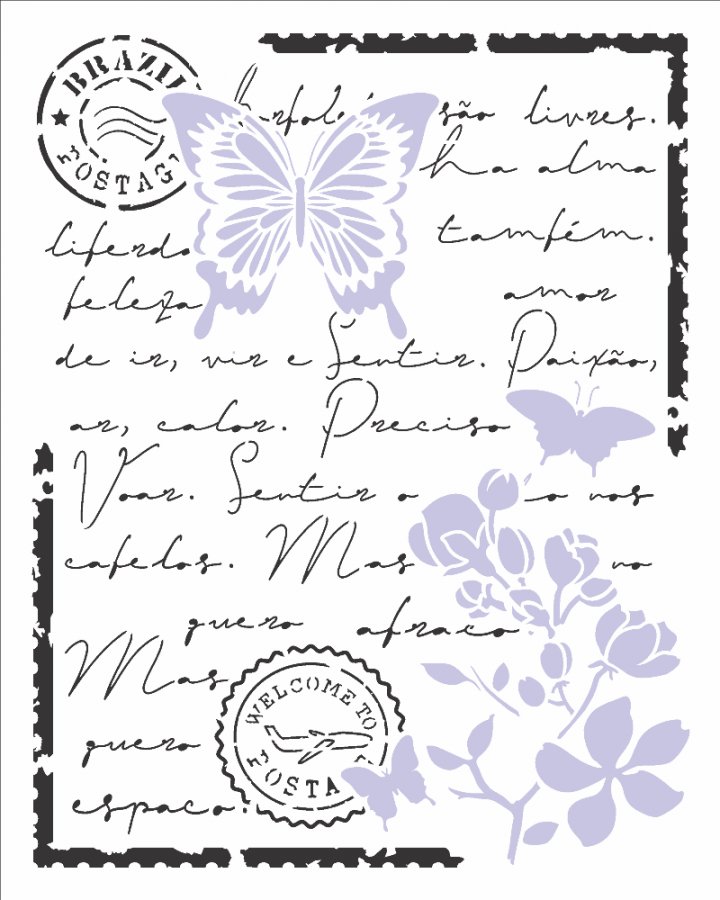 BRAZIL
POSTAG
são livres.
na alma
liberda
também.
beleza
amor
de ir, vir e Sentir. Paixão,
ar, calor. Preciso
Voar. Sentir o nos
cabelos. Mas no
quero abraco
Mas
WELCOME TO
POSTA
quero
espaco.